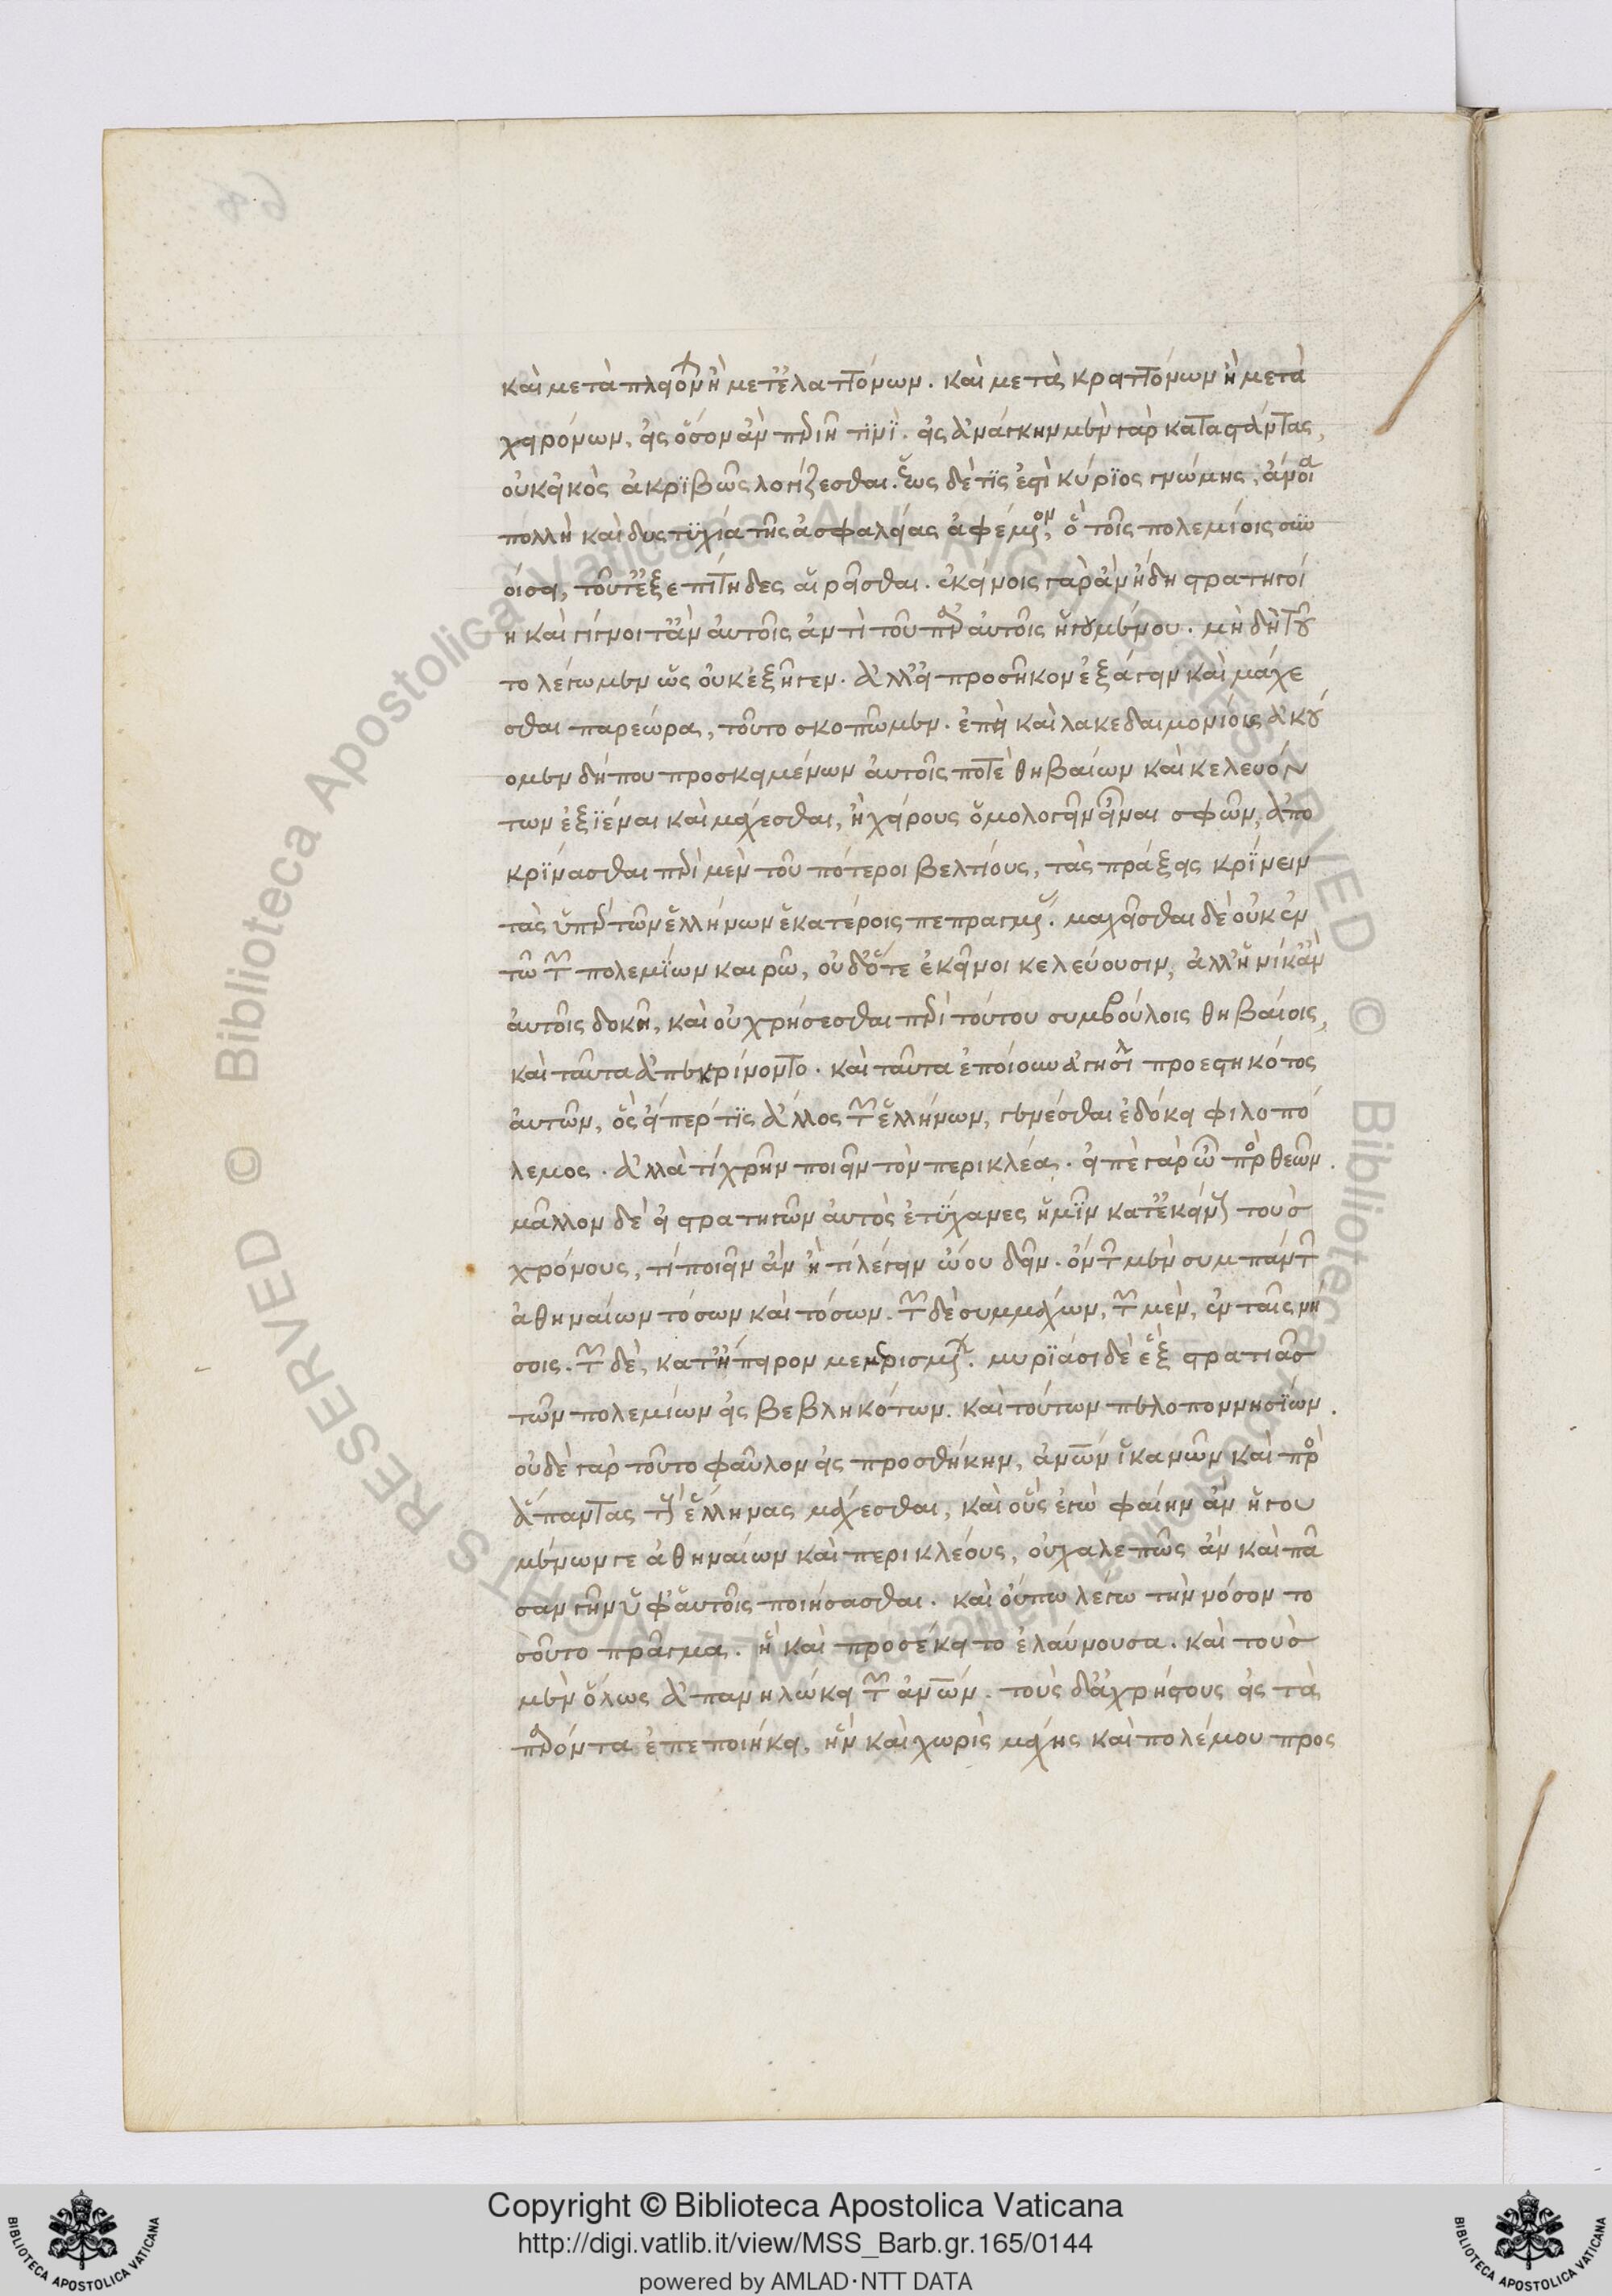 καὶ μετὰ πλειόνων ἢ μετ' ἐλαττόνων. καὶ μετὰ κρειττόνων ἢ μετὰ
χειρόνων, εἰς ὅσον ἂν περιῇ τινί. εἰς ἀνάγκην μὲν γὰρ καταστάντας,
οὐκ εἰκὸς ἀκριβῶς λογίζεσθαι. ἕως δέ τις ἐστὶ κύριος γνώμης, ἄνοια
πολλὴ καὶ δυστυχία τῆς ἀσφαλείας ἀφέμενον, ὃ τοῖς πολεμίοις συν
οίσει, τοῦτ' ἐξεπίτηδες αἱρεῖσθαι. ἐκείνοις γὰρ ἂν ἤδη στρατηγοί
η καὶ γίγνοιτ' ἂν αὐτοῖς ἀντὶ τοῦ παρ' αὐτοῖς ἡγουμένου. μὴ δὴ τοῦ
το λέγωμεν ὡς οὐκ ἐξῆγεν. ἀλλ' εἰ προσῆκον ἐξάγειν καὶ μάχε
σθαι παρεώρα, τοῦτο σκοπῶμεν. ἐπεὶ καὶ λακεδαιμονίοις ἀκού
ομεν δήπου προσκειμένων αὐτοῖς ποτὲ θηβαίων καὶ κελευόν
των ἐξιέναι καὶ μάχεσθαι, ἢ χείρους ὁμολογεῖν εἶναι σφῶν, ἀπο
κρίνασθαι περὶ μὲν τοῦ πότεροι βελτίους, τὰς πράξεις κρίνειν
τὰς ὑπὲρ τῶν ἑλλήνων ἑκατέροις πεπραγμένας. μαχεῖσθαι δὲ οὐκ ἐν
τῷ τῶν πολεμίων καιρῷ, οὐδ' ὅτε ἐκεῖνοι κελεύουσιν, ἀλλ' ἡνίκ' ἂν
αὐτοῖς δοκῇ, καὶ οὐ χρήσεσθαι περὶ τούτου συμβούλοις θηβαίοις,
καὶ ταῦτα ἀπεκρίνοντο. καὶ ταῦτα ἐποίουν ἀγησιλ προεστηκότος
αὐτῶν, ὃς εἴπερ τις ἄλλος τῶν ἑλλήνων, γενέσθαι ἐδόκει φιλοπό
λεμος. ἀλλὰ τί χρῆν ποιεῖν τὸν περικλέα. εἰπὲ γὰρ ὦ πρὸς θεῶν.
μᾶλλον δὲ εἰ στρατηγῶν αὐτὸς ἐτύχανες ἡμῖν κατ' ἐκείνους τοὺς
χρόνους, τί ποιεῖν ἂν ἢ τί λέγειν ᾤου δεῖν. ὄντων μὲν συμπάντων
ἀθηναίων τόσων καὶ τόσων. τῶν δὲ συμμάχων, τῶν μὲν, ἐν ταῖς νή
σοις. τῶν δὲ, κατ' ἤπειρον μεμερισμένων. μυριάσι δὲ ἓξ στρατιᾶς
τῶν πολεμίων εἰς βεβληκότων. καὶ τούτων πελοποννησίων.
οὐδὲ γὰρ τοῦτο φαῦλον εἰς προσθήκην, ἀνθρώπων ἱκανῶν καὶ πρὸς
ἅπαντας τοὺς ἕλληνας μάχεσθαι, καὶ οὓς ἐγὼ φαίην ἂν ἡγου
μένων γε ἀθηναίων καὶ περικλέους, οὐ χαλεπῶς ἂν καὶ πᾶ
σαν γῆν ὑφ' αὑτοῖς ποιήσασθαι. καὶ οὔπω λέγω τὴν νόσον το
σοῦτο πρᾶγμα. ἣ καὶ προσέκειτο ἐλαύνουσα. καὶ τοὺς
μὲν ὅλως ἀπανηλώκει τῶν ἀνθρώπων. τοὺς δ' ἀχρήστους εἰς τὰ
παρόντα ἐπεποιήκει, ἣν καὶ χωρὶς μάχης καὶ πολέμου πρὸς
Copyright © Biblioteca Apostolica Vaticana
http://digi.vatlib.it/view/MSS_Barb.gr.165/0144
powered by AMLAD·NTT DATA